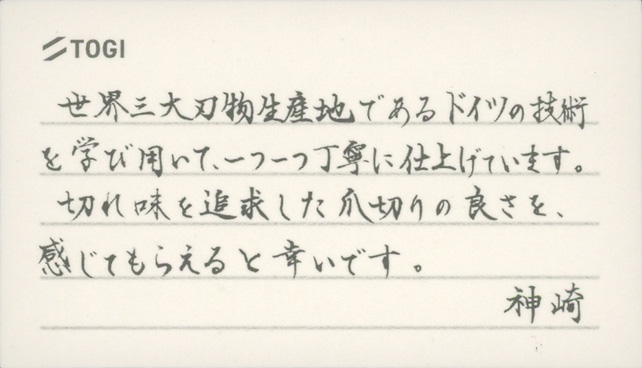 TOGI
世界三大刃物生産地であるドイツの技術
を学び用いて、一つ一つ丁寧に仕上げています。
切れ味を追求した爪切りの良さを、
感じてもらえると幸いです。
神崎